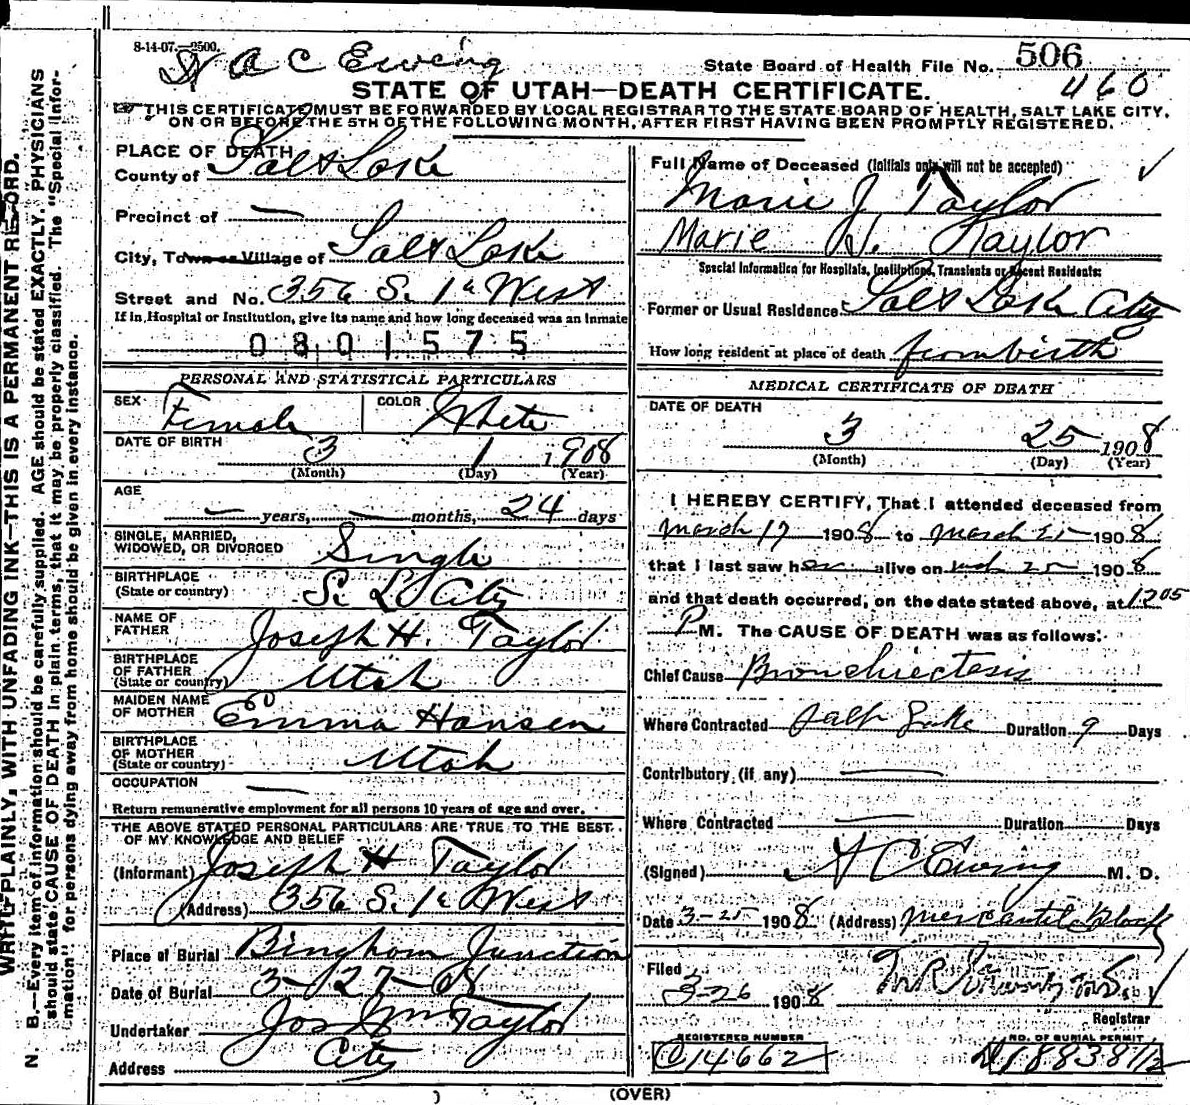 8-14-07.—2500.
Dr A C Ewing
State Board of Health File No. 506
460
STATE OF UTAH—DEATH CERTIFICATE.
THIS CERTIFICATE MUST BE FORWARDED BY LOCAL REGISTRAR TO THE STATE BOARD OF HEALTH, SALT LAKE CITY,
ON OR BEFORE THE 5TH OF THE FOLLOWING MONTH, AFTER FIRST HAVING BEEN PROMPTLY REGISTERED.
WRITE PLAINLY, WITH UNFADING INK—THIS IS A PERMANENT RECORD.
N. B.—Every item of information should be carefully supplied. AGE should be stated EXACTLY. PHYSICIANS
should state CAUSE OF DEATH in plain terms, that it may be properly classified. The "Special Infor-
mation" for persons dying away from home should be given in every instance.
PLACE OF DEATH
County of Salt Lake
Precinct of —
City, Town or Village of Salt Lake
Street and No. 356 S. 1st West
If in Hospital or Institution, give its name and how long deceased was an Inmate
0801575
PERSONAL AND STATISTICAL PARTICULARS
SEX Female COLOR White
DATE OF BIRTH 3 1 1908
(Month) (Day) (Year)
AGE
— years, — months, 24 days
SINGLE, MARRIED,
WIDOWED, OR DIVORCED Single
BIRTHPLACE
(State or country) S. L. City
NAME OF
FATHER Joseph H. Taylor
BIRTHPLACE
OF FATHER
(State or country) Utah
MAIDEN NAME
OF MOTHER Emma Hansen
BIRTHPLACE
OF MOTHER
(State or country) Utah
OCCUPATION —
Return remunerative employment for all persons 10 years of age and over.
THE ABOVE STATED PERSONAL PARTICULARS ARE TRUE TO THE BEST
OF MY KNOWLEDGE AND BELIEF
(Informant) Joseph H Taylor
(Address) 356 S. 1st West
Place of Burial Bingham Junction
Date of Burial 3-27-08
Undertaker Jos Wm Taylor
Address City
Full Name of Deceased (Initials only will not be accepted)
Marie J. Taylor
Marie J. Taylor
Special Information for Hospitals, Institutions, Transients or Recent Residents:
Former or Usual Residence Salt Lake City
How long resident at place of death from birth
MEDICAL CERTIFICATE OF DEATH
DATE OF DEATH
3 25 1908
(Month) (Day) (Year)
I HEREBY CERTIFY, That I attended deceased from
March 17 1908 to March 25 1908
that I last saw her alive on Mch 25 1908
and that death occurred, on the date stated above, at 1205
P M. The CAUSE OF DEATH was as follows:
Chief Cause Bronchiectosis
Where Contracted Salt Lake Duration 9 Days
Contributory (if any) —
Where Contracted — Duration Days
(Signed) A C Ewing M. D.
Date 3-25 1908 (Address) Mercantile Block
Filed
3-26 1908
Registrar
REGISTERED NUMBER NO. OF BURIAL PERMIT
C14662 D18838 1/2
(OVER)